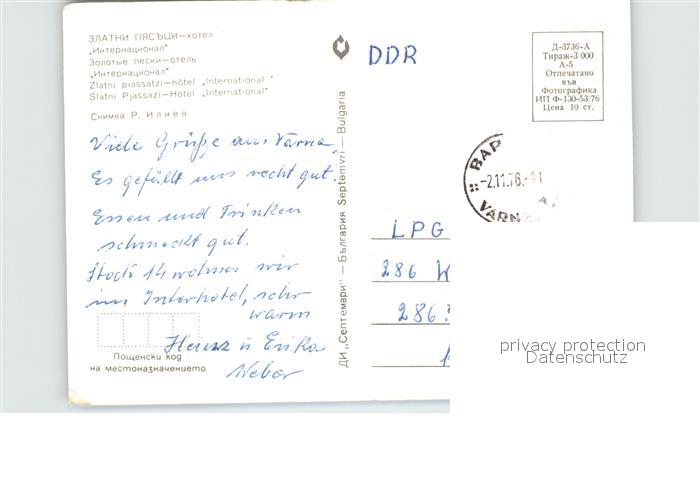 ЗЛАТНИ ПЯСЪЦИ—хотел
„Интернационал"
Золотые пески—отель
„Интернационал"
Zlatni piassatzi—hôtel „International"
Slatni Pjassazi—Hotel „International"
Снимка Р. Илиев
Viele Grüße aus Varna,
Es gefällt uns recht gut.
Essen und Trinken
schmeckt gut.
Stock 14 wohnen wir
im Interhotel, sehr
warm
Heinz u Erika
Weber
Пощенски код
на местоназначението
ДИ „Септемари" — България Septemvri — Bulgaria
DDR
Д-3736-А
Тираж-3 000
А-5
Отпечатано
във
Фотографика
ИП Ф-130-53/76
Цена 10 ст.
ВАР
-2.11.76.-11
VARN
LPG
286 W
286
privacy protection
Datenschutz